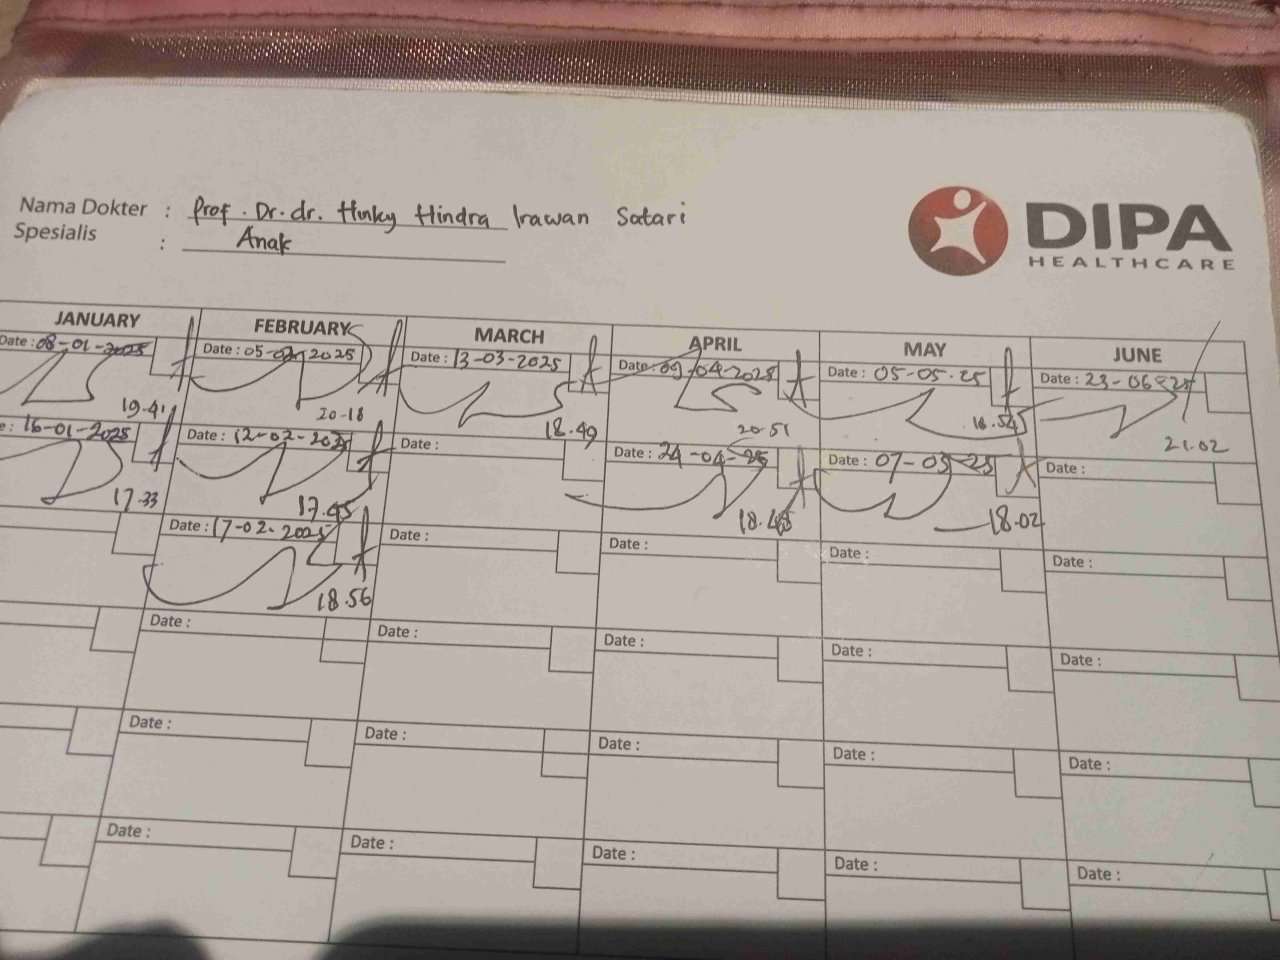 Nama Dokter : Prof. Dr. dr. Hinky Hindra Irawan Satari
Spesialis : Anak
DIPA
HEALTHCARE
JANUARY FEBRUARY MARCH APRIL MAY JUNE
Date : 08-01-2025 Date : 05-02-2025 Date : 13-03-2025 Date : 09-04-2025 Date : 05-05-25 Date : 23-06-25
19.41 20-18 18.49 20-51 18.54 21.02
e : 16-01-2025 Date : 12-02-2025 Date : Date : 24-04-25 Date : 07-05-25 Date :
17.33 17.45 18.48 18.02
Date : 17-02-2025 Date : Date : Date : Date :
18.56
Date : Date : Date : Date : Date :
Date : Date : Date : Date : Date :
Date : Date : Date : Date : Date :